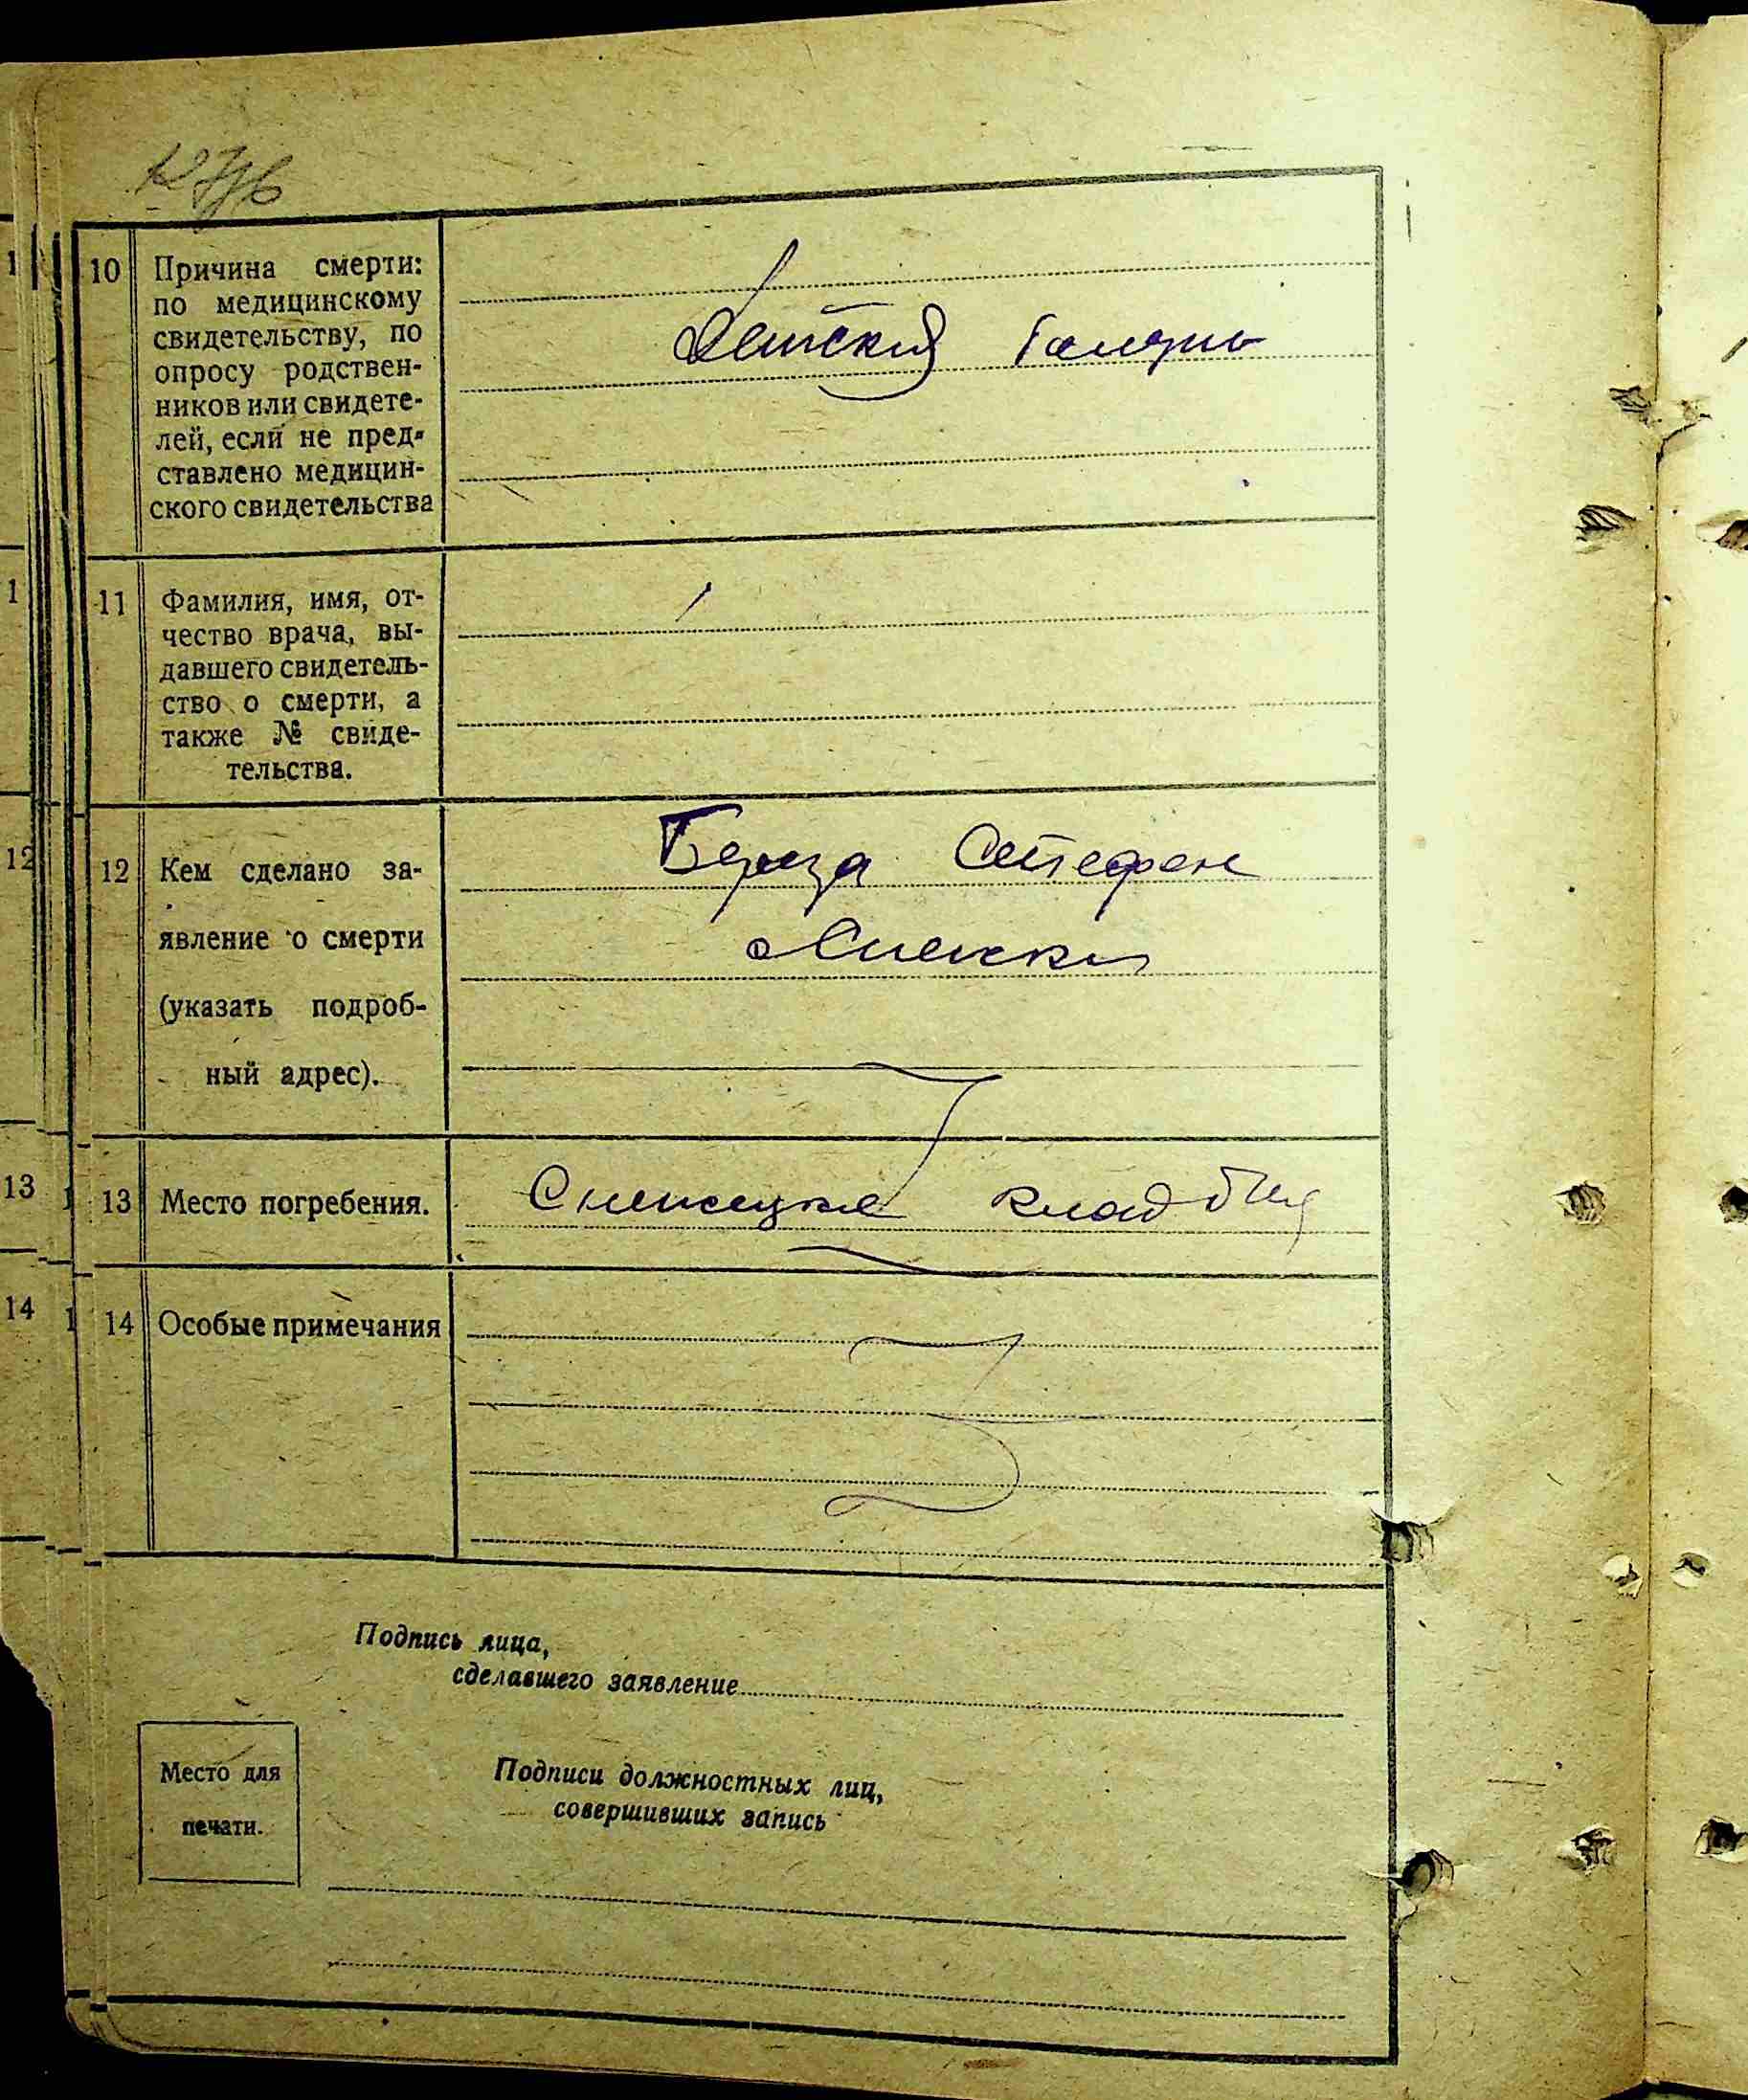 10 Причина смерти:
по медицинскому
свидетельству, по
опросу родствен-
ников или свидете-
лей, если не пред-
ставлено медицин-
ского свидетельства
Детская
11 Фамилия, имя, от-
чество врача, вы-
давшего свидетель-
ство о смерти, а
также № свиде-
тельства.
12 Кем сделано за-
явление о смерти
(указать подроб-
ный адрес).
Береза Стефан
13 Место погребения.
кладбищ
14 Особые примечания
Подпись лица,
сделавшего заявление
Место для
печати.
Подписи должностных лиц,
совершивших запись
1
1
12
13
14